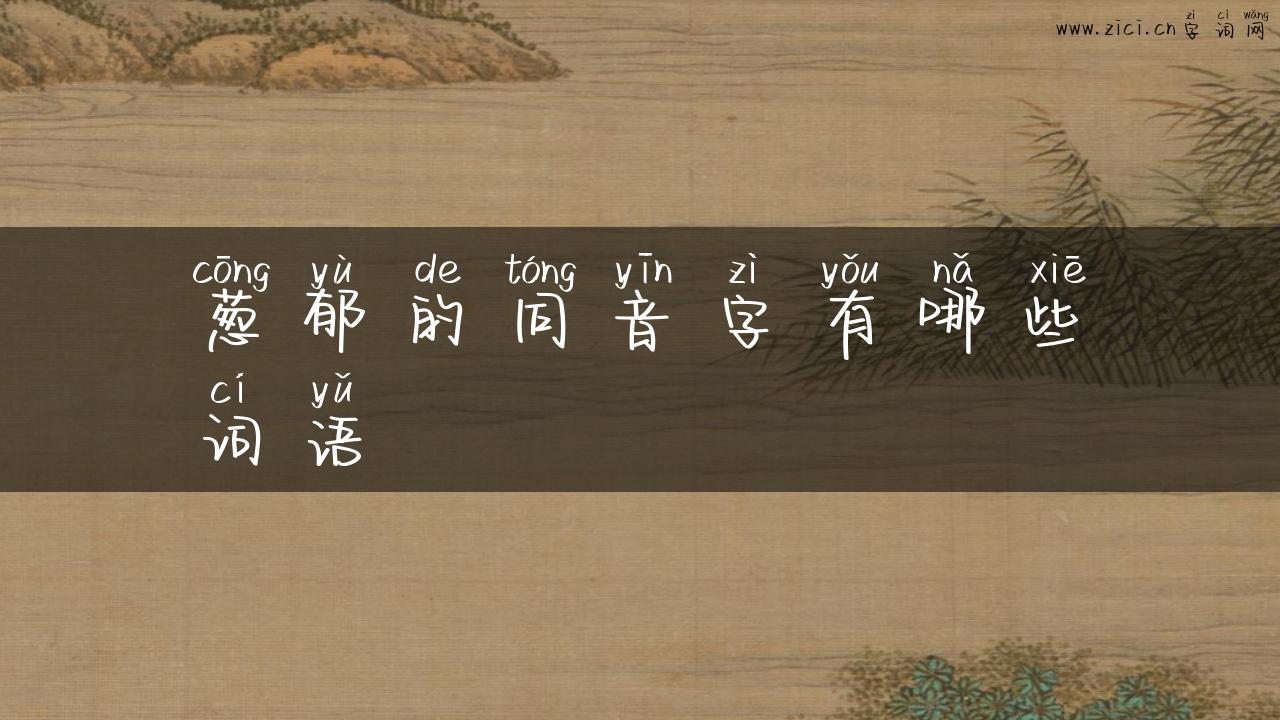 zì cí wǎng
www.zici.cn 字词网
cōng yù de tóng yīn zì yǒu nǎ xiē
葱郁的同音字有哪些
cí yǔ
词语